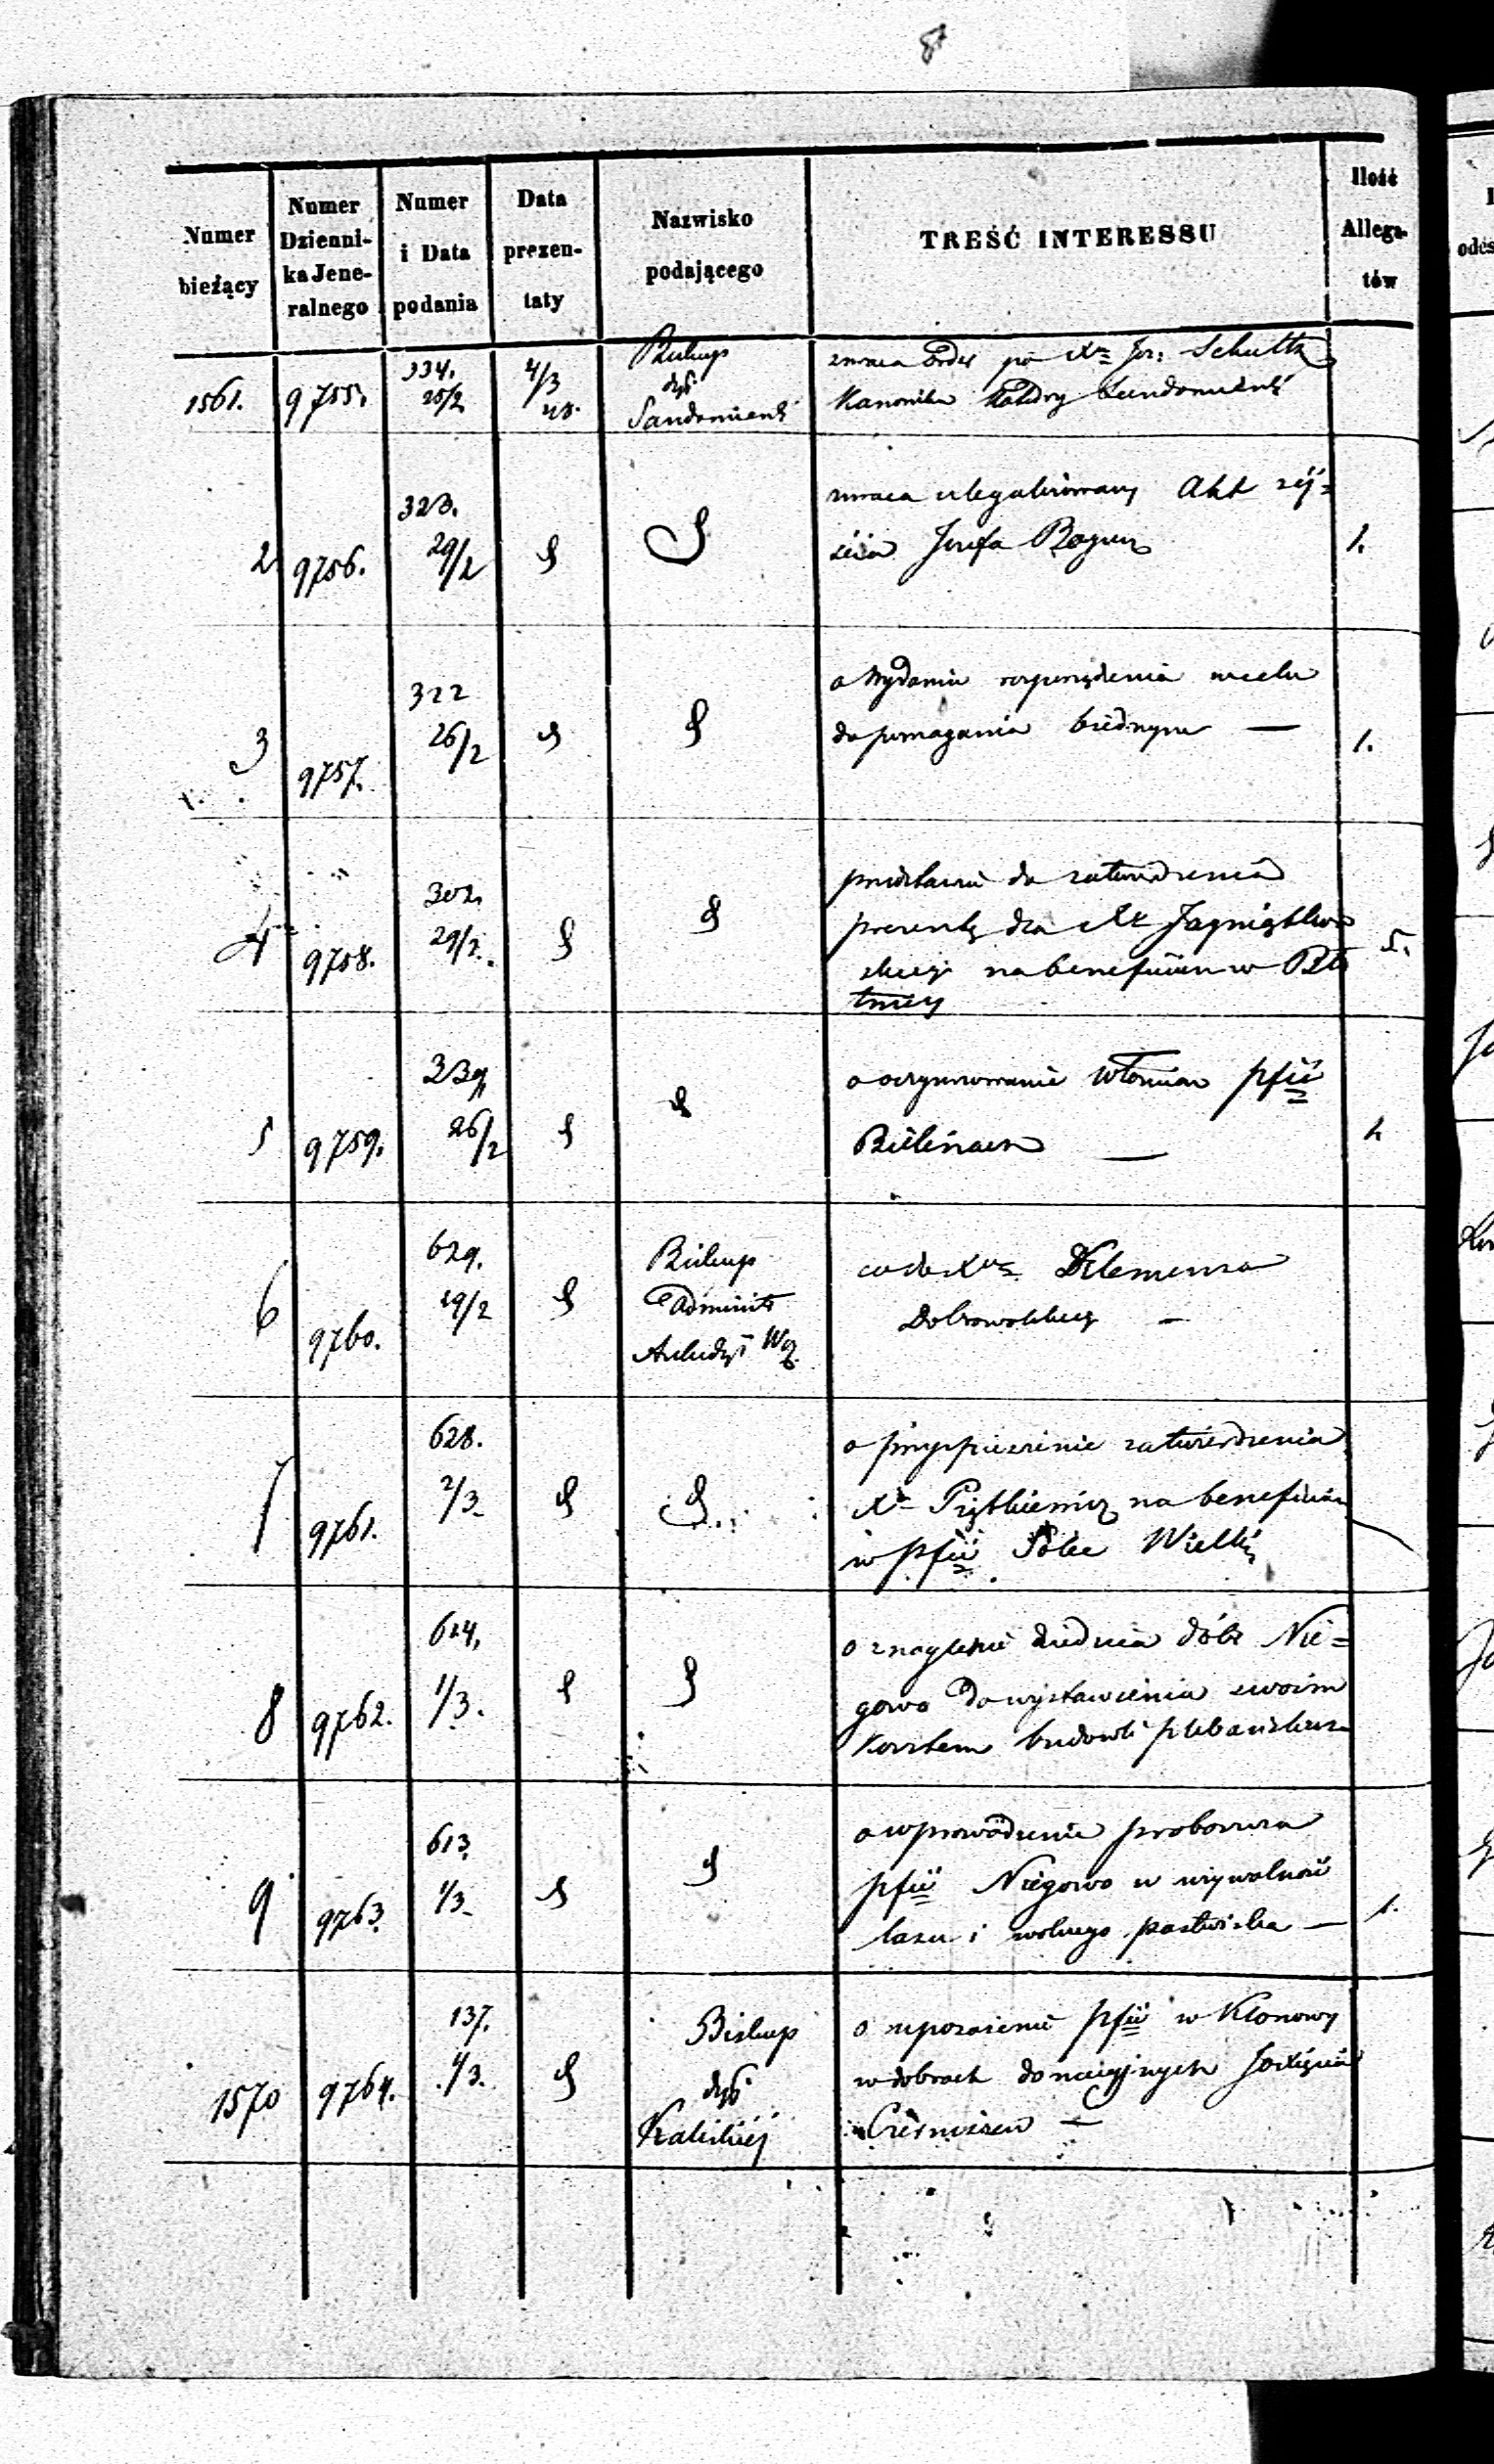 87
Numer bieżący
Numer Dzienni-
ka Jene-
ralnego
Numer i Data podania
Data prezen-
taty
Nazwisko podającego
TREŚĆ INTERESSU
Ilość Allega-
tów
1561. 9755. 334. 25/2 4/3 48. Biskup dyj. Sandomirski
zwraca po Xz Joz: Schultz
Kanonika Katedry Sandomirski
2 9756. 323. 29/2
zwraca zlegalizowany Akt zej=
ścia Jozefa 1.
3 9757. 322 26/2
o wydanie rozporządzenia wcelu
dopomagania biednym — 1.
4 9758. 302. 29/2.
przedstawia do zatwierdzenia
prezentę dla Xz
skiego na beneficium w
tnicy 5.
5 9759. 339 26/2
o włościan pfii
Bielinach —
6 9760. 629. 29/2 Biskup Administr Archidyi
co do Xdza Klemensa
Dobrowolskiego —
7 9761. 628. 2/3
o przyspieszenie zatwierdzenia
Xa na beneficium
w pfii Wielki
8 9762. 624. 1/3.
o znaglenie dziedzica dóbr Nie=
gowo do wystawienia swoim
Kosztem budowli plebańskich
9 9763. 613. 1/3
o wprowadzenie proboszcza
pfii Niegowo w używalność
lasu i wolnego pastwiska — 1.
1570 9764. 137. 1/3. Biskup dyj. Kaliskiej
o uposażenie pfii w Klonowy
w dobrach donacyjnych